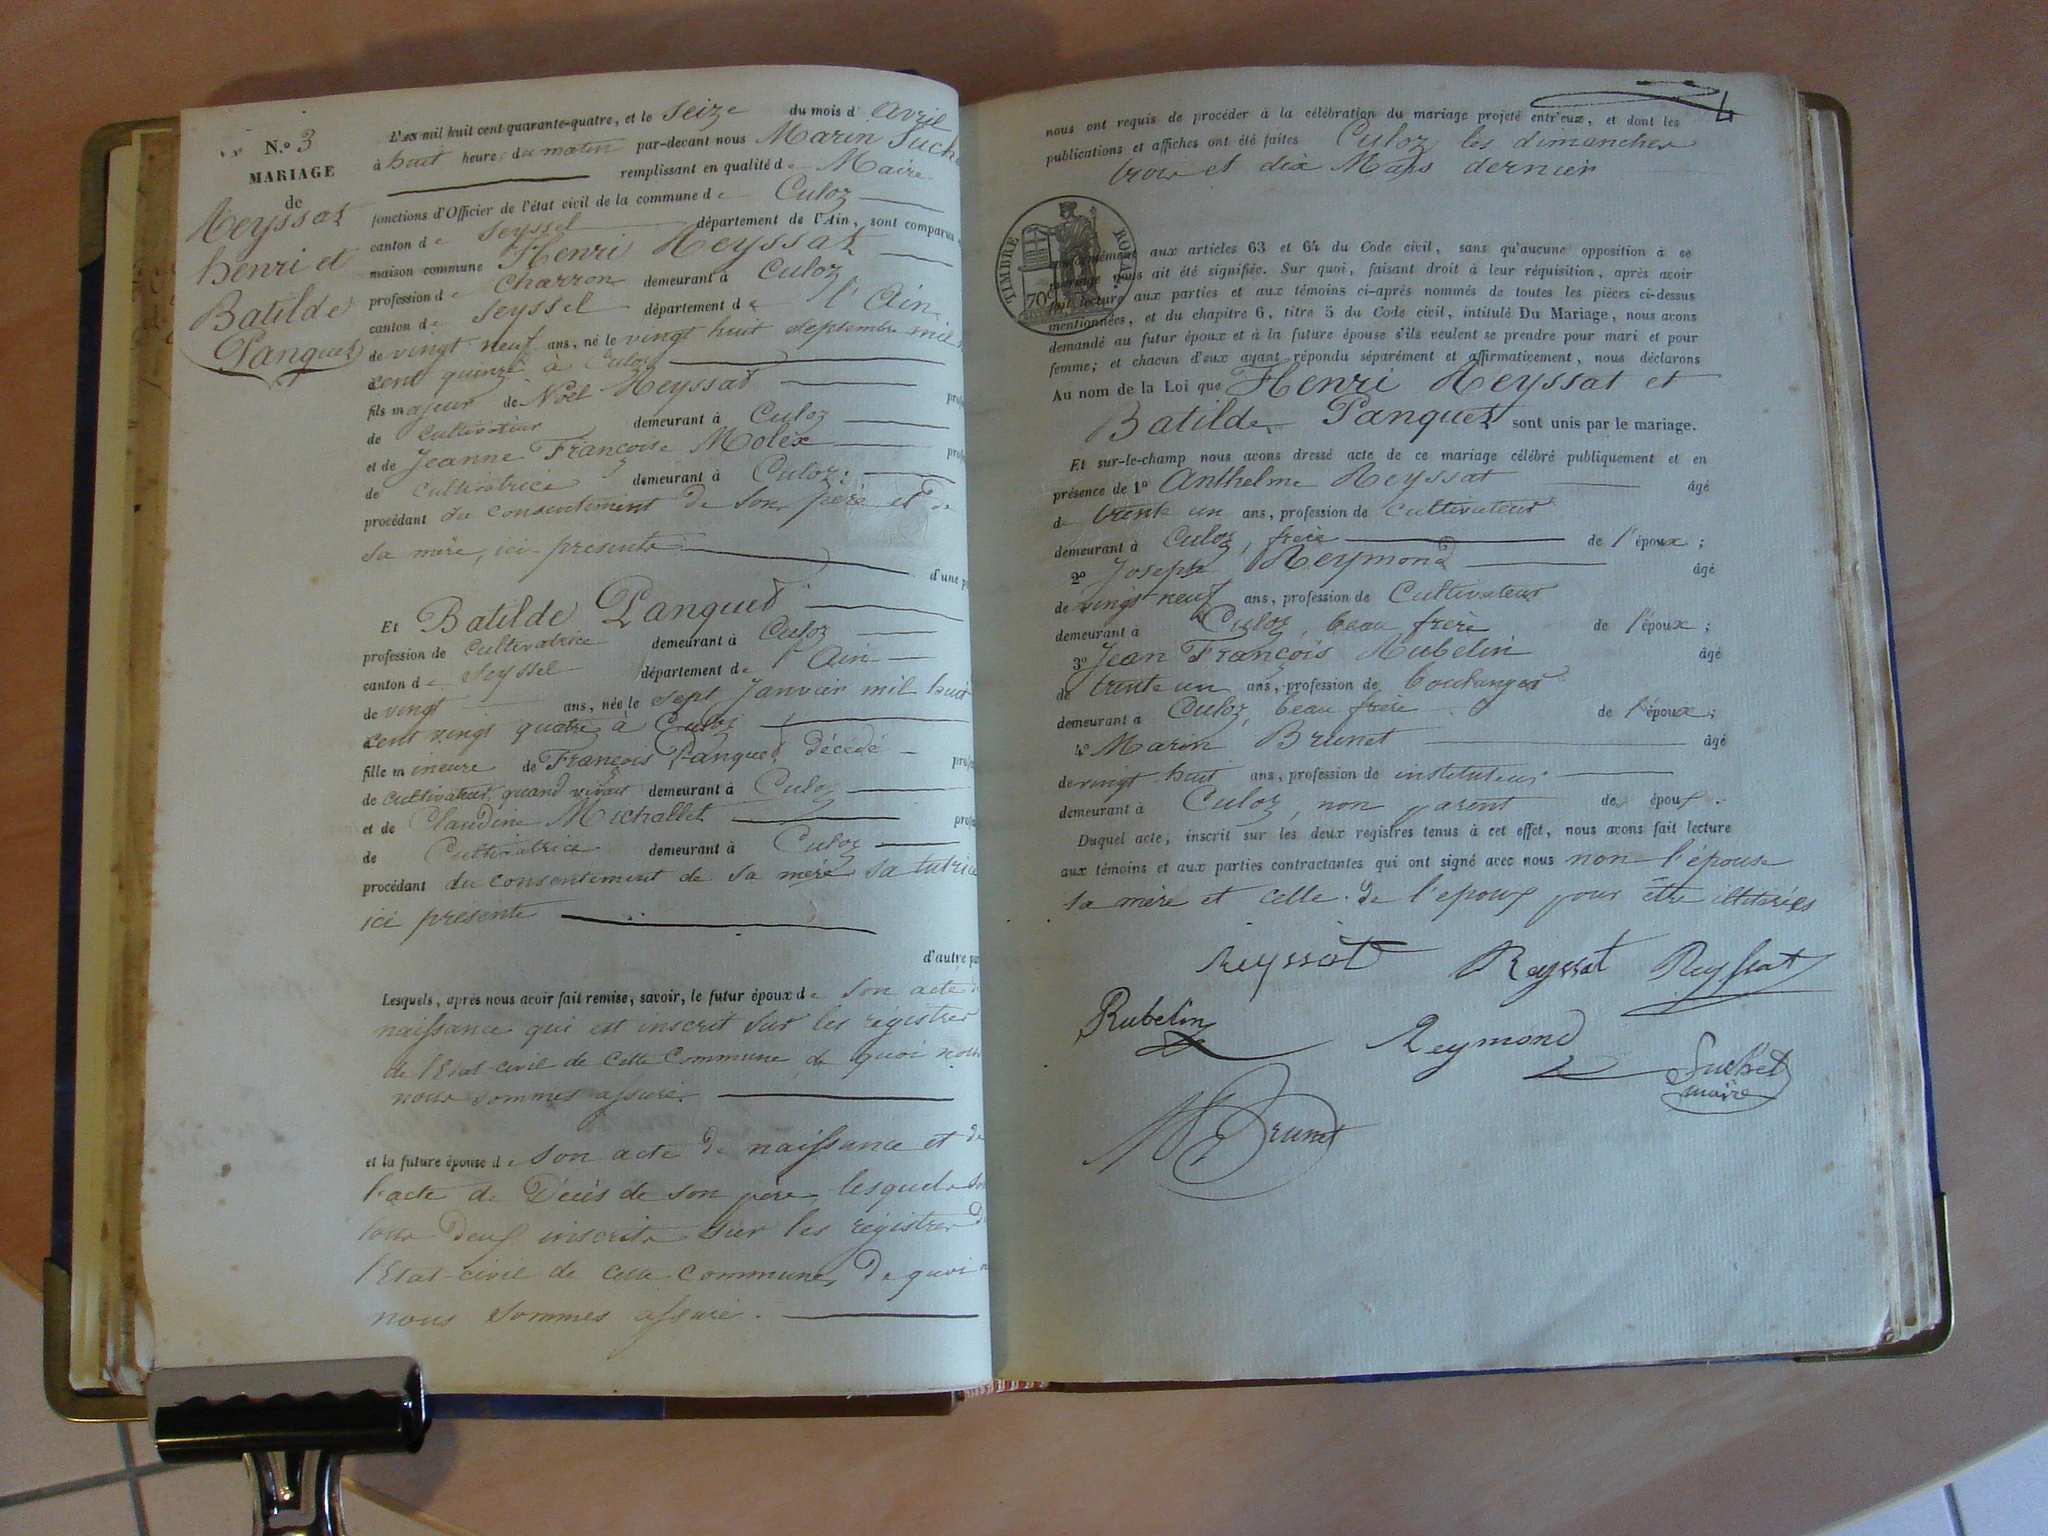 N.o 3
MARIAGE
de
Reyssat
henri et
Batilde
Panquet
L'an mil huit cent quarante-quatre, et le seize du mois d'avril
à huit heure du matin par-devant nous Marin Suche
remplissant en qualité de Maire
fonctions d'Officier de l'état civil de la commune de Culoz
canton de Seyssel département de l'Ain, sont comparus
maison commune Henri Reyssat
profession de Charron demeurant à Culoz
canton de Seyssel département de l'Ain
de vingt neuf ans, né le vingt huit septembre mil
cent quinze à Culoz
fils majeur de Noël Reyssat
de Cultivateur demeurant à Culoz
et de Jeanne Françoise Molex
de Cultivatrice demeurant à Culoz
procédant du consentement de son père et de
sa mère, ici présents
d'une p
Et Batilde Panquet
profession de Cultivatrice demeurant à Culoz
canton de Seyssel département de l'Ain
de vingt ans, née le sept Janvier mil huit
cent vingt quatre à Culoz
fille mineure de François Panquet décédé
de cultivateur quand vivait demeurant à Culoz
et de Claudine Michallet
de Cultivatrice demeurant à Culoz
procédant du consentement de sa mère sa tutrice
ici présente
d'autre pa
Lesquels, après nous avoir fait remise, savoir, le futur époux de son acte
naissance qui est inscrit sur les registres
de l'Etat-civil de cette Commune, de quoi nous
nous sommes assuré.
et la future épouse de son acte de naissance et de
l'acte de Décès de son père, lesquels
tous deux inscrits sur les registres d
l'Etat-civil de cette Commune, de quoi
nous sommes assuré.
4
nous ont requis de procéder à la célébration du mariage projeté entr'eux, et dont les
publications et affiches ont été faites Culoz les dimanches
trois et dix Mars dernier
TIMBRE ROYAL
70c
conformément aux articles 63 et 64 du Code civil, sans qu'aucune opposition à ce
mariage nous ait été signifiée. Sur quoi, faisant droit à leur réquisition, après avoir
fait lecture aux parties et aux témoins ci-après nommés de toutes les pièces ci-dessus
mentionnées, et du chapitre 6, titre 5 du Code civil, intitulé Du Mariage, nous avons
demandé au futur époux et à la future épouse s'ils veulent se prendre pour mari et pour
femme; et chacun d'eux ayant répondu séparément et affirmativement, nous déclarons
Au nom de la Loi que Henri Reyssat et
Batilde Panquet sont unis par le mariage.
Et sur-le-champ nous avons dressé acte de ce mariage célébré publiquement et en
présence de 1o Anthelme Reyssat âgé
de trente un ans, profession de Cultivateur
demeurant à Culoz, frère de l'époux;
2o Joseph Reymond âgé
de vingt neuf ans, profession de Cultivateur
demeurant à Culoz, beau frère de l'époux;
3o Jean François Rubelin âgé
de trente un ans, profession de boulanger
demeurant à Culoz, beau frère de l'époux;
4o Marin Brunet âgé
de vingt huit ans, profession de instituteur
demeurant à Culoz, non parent des époux.
Duquel acte, inscrit sur les deux registres tenus à cet effet, nous avons fait lecture
aux témoins et aux parties contractantes qui ont signé avec nous non l'épouse
sa mère et celle de l'époux pour être illitérées
Reyssat Reyssat Reyssat
Rubelin Reymond Suchet
maire
M Brunet